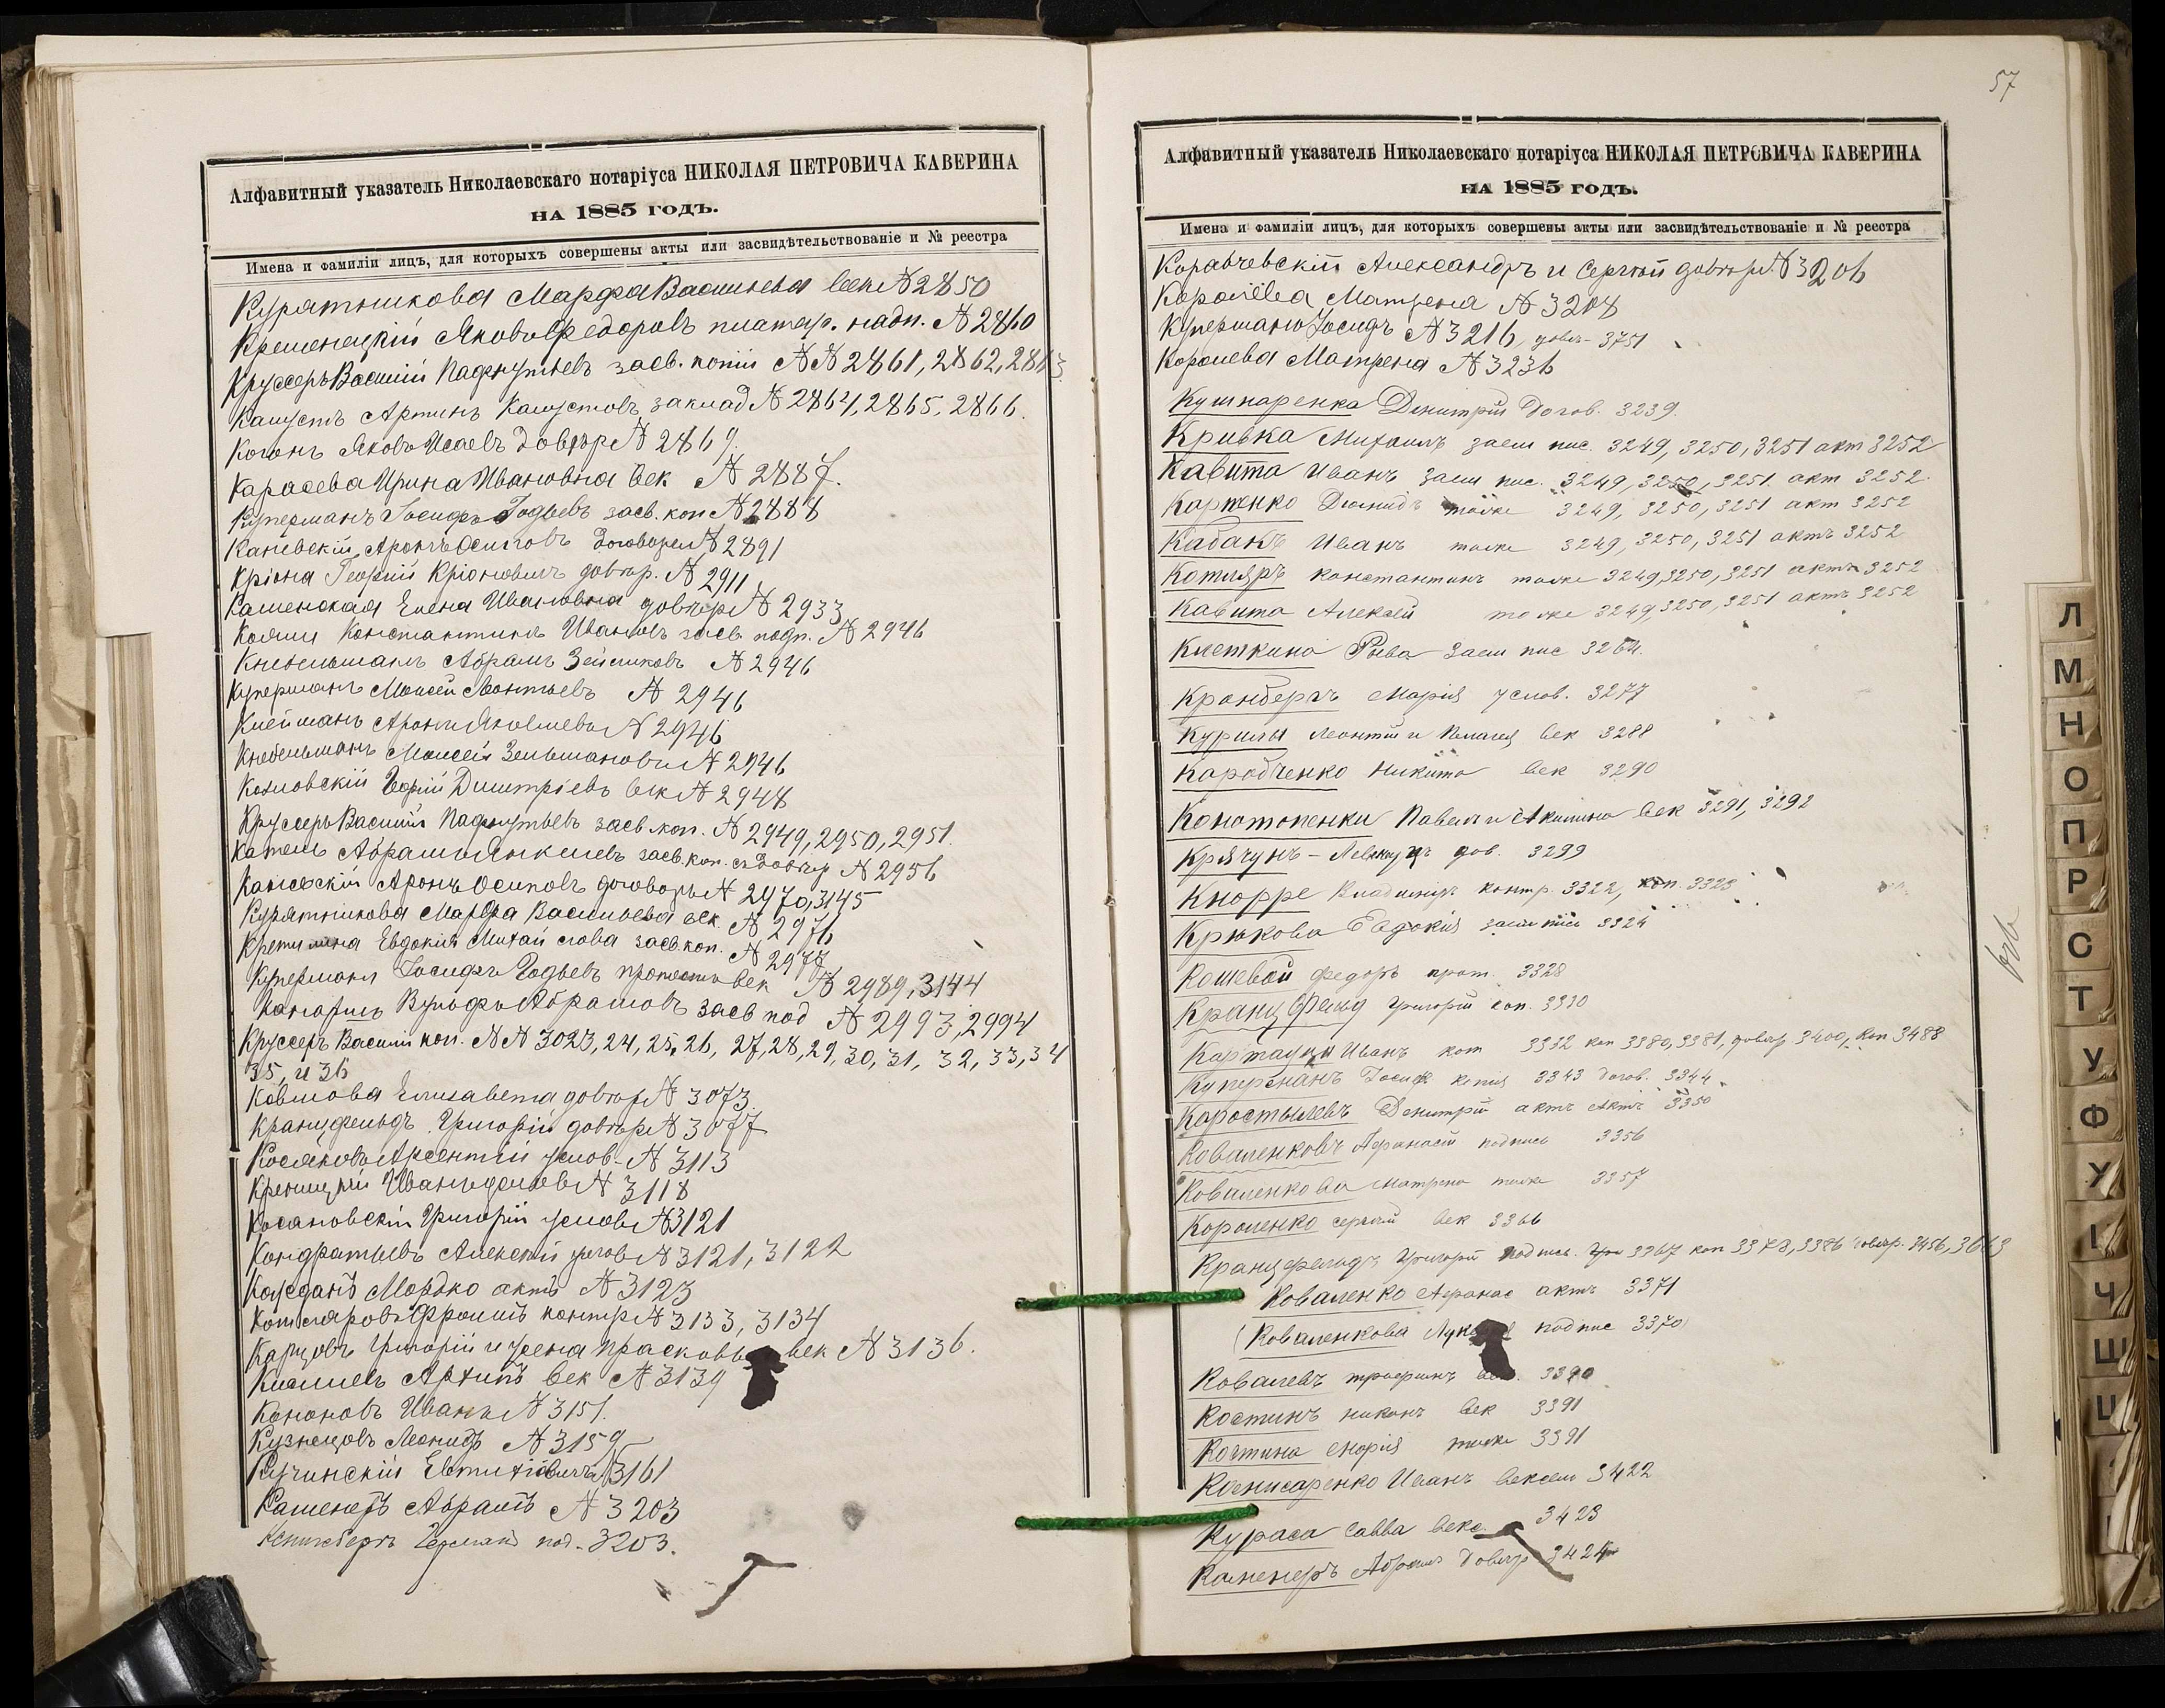 Алфавитный указатель Николаевскаго нотаріуса НИКОЛАЯ ПЕТРОВИЧА КАВЕРИНА
НА 1885 ГОДЪ.
Имена и фамиліи лицъ, для которыхъ совершены акты или засвидѣтельствованіе и № реестра
Курятникова Марфа Васильева век № 2850
Кременецкій Яковъ Федоровъ надп. № 2860
Круссеръ Василій Пафнутьевъ засв. копіи №№ 2861, 2862, 2863
Капустъ Артинъ Капустовъ заклад № 2864, 2865, 2866.
Коганъ Яковъ Исаевъ довѣр № 2869.
Карасева Ирина Ивановна век № 2887.
Куперманъ Іосифъ Годьевъ засв. коп № 2888
Каневскій Аронъ Осиповъ договоръ № 2891
Кріона Георгій Кріоновичъ довѣр. № 2911
Каменская Елена Ивановна довѣр № 2933
Константинъ Ивановъ засв. подп. № 2946
Кнебельманъ Абрамъ № 2946
Куперманъ Моисей Леонтьевъ № 2946
Клейманъ Аронъ Яковлевъ № 2946
Кнебельманъ Моисей Зельмановъ № 2946
Козловскій Георгій Дмитріевъ век № 2948
Круссеръ Василій Пафнутьевъ засв. коп. № 2949, 2950, 2951.
Абрамъ Янкелевъ засв. коп. съ довѣр № 2956
Каневскій Аронъ Осиповъ договоръ № 2970, 3145
Курятникова Марфа Васильева век. № 2976
Евдокія Михайлова засв коп. № 2977
Куперманъ Іосифъ Годьевъ протестъ век № 2989, 3144
Вульфъ Абрамовъ засв под № 2993, 2994
Круссеръ Василій коп. №№ 3023, 24, 25, 26, 27, 28, 29, 30, 31, 32, 33, 34
35, и 36
Ковшова Елизавета довѣр № 3073
Кранцфельдъ Григорій довѣр № 3077
Косяковъ Арсентій услов. № 3113
Иванъ № 3118
Косановскій Григорій услов № 3121
Кондратьевъ Алексѣй услов № 3121, 3122
Каждань Мордко актъ № 3123
Котляровъ Ефроимъ контр № 3133, 3134
Карповъ Григорій и жена Прасковья век № 3136.
Архипъ век № 3139
Кононовъ Иванъ № 3151.
Кузнецовъ Леонидъ № 3159
Кучинскій Евтихіевичъ 3161
Каменеръ Абрамъ № 3203
Кенигсбергъ Германъ под. 3203.
57
Алфавитный указатель Николаевскаго нотаріуса НИКОЛАЯ ПЕТРОВИЧА КАВЕРИНА
НА 1885 ГОДЪ.
Имена и фамиліи лицъ, для которыхъ совершены акты или засвидѣтельствованіе и № реестра
Коравчевскій Александръ и Сергѣй довѣр. № 3206
Королёва Матрена № 3208
Куперманъ Іосифъ № 3216, довѣ- 3751
Королева Матрена № 3236
Кушнаренка Димитрій догов. 3239.
Кривка Михаилъ заем пис. 3249, 3250, 3251 акт 3252
Кавита Иванъ заем пис. 3249, 3250, 3251. акт 3252.
тоже 3249, 3250, 3251 акт 3252
Кабакъ Иванъ тоже 3249, 3250, 3251 актъ 3252
Котляръ Константинъ тоже 3249, 3250, 3251 актъ 3252
Кавита Алексѣй тоже 3249, 3250, 3251 актъ 3252
Клеткина Рыва заем пис 3264.
Кранбергъ Марія услов. 3277
Курилы Леонтій и Пелагея век 3288
Каробченко Никита век 3290
Конотопенки Павелъ и Акилина век 3291, 3292
Крячунъ дов. 3299
Кнорре Владиміръ контр. 3322, коп. 3323
Крюкова Евдокія заем пис 3324
Кошевой Федоръ прот. 3328
Кранцфельд Григорій коп. 3330
Иванъ коп 3332 коп 3380, 3381, довѣр 3400, коп 3488
Куперманъ Іосиф копія 3343 догов. 3344
Каростылевъ Димитрій актъ 3350
Коваленковъ Афанасій подпись 3356
Коваленкова Матрена тоже 3357
Короленко Сергѣй век 3366
Кранцфельдъ Григорій подпись. 3367 коп 3378, 3386 довѣр. 3456, 3663
Коваленко Афанас актъ 3371
(Коваленкова подпис 3370)
Ковалевъ Трофимъ 3390
Костинъ Никонъ век 3391
Костина Марія тоже 3391
Комисаренко Иванъ вексел 3422
Кураса Савва векс. 3423
Каменеръ Абрамъ довѣр 3424
Л
М
Н
О
П
Р
С
Т
У
Ф
Ц
Ч
Ш
Щ